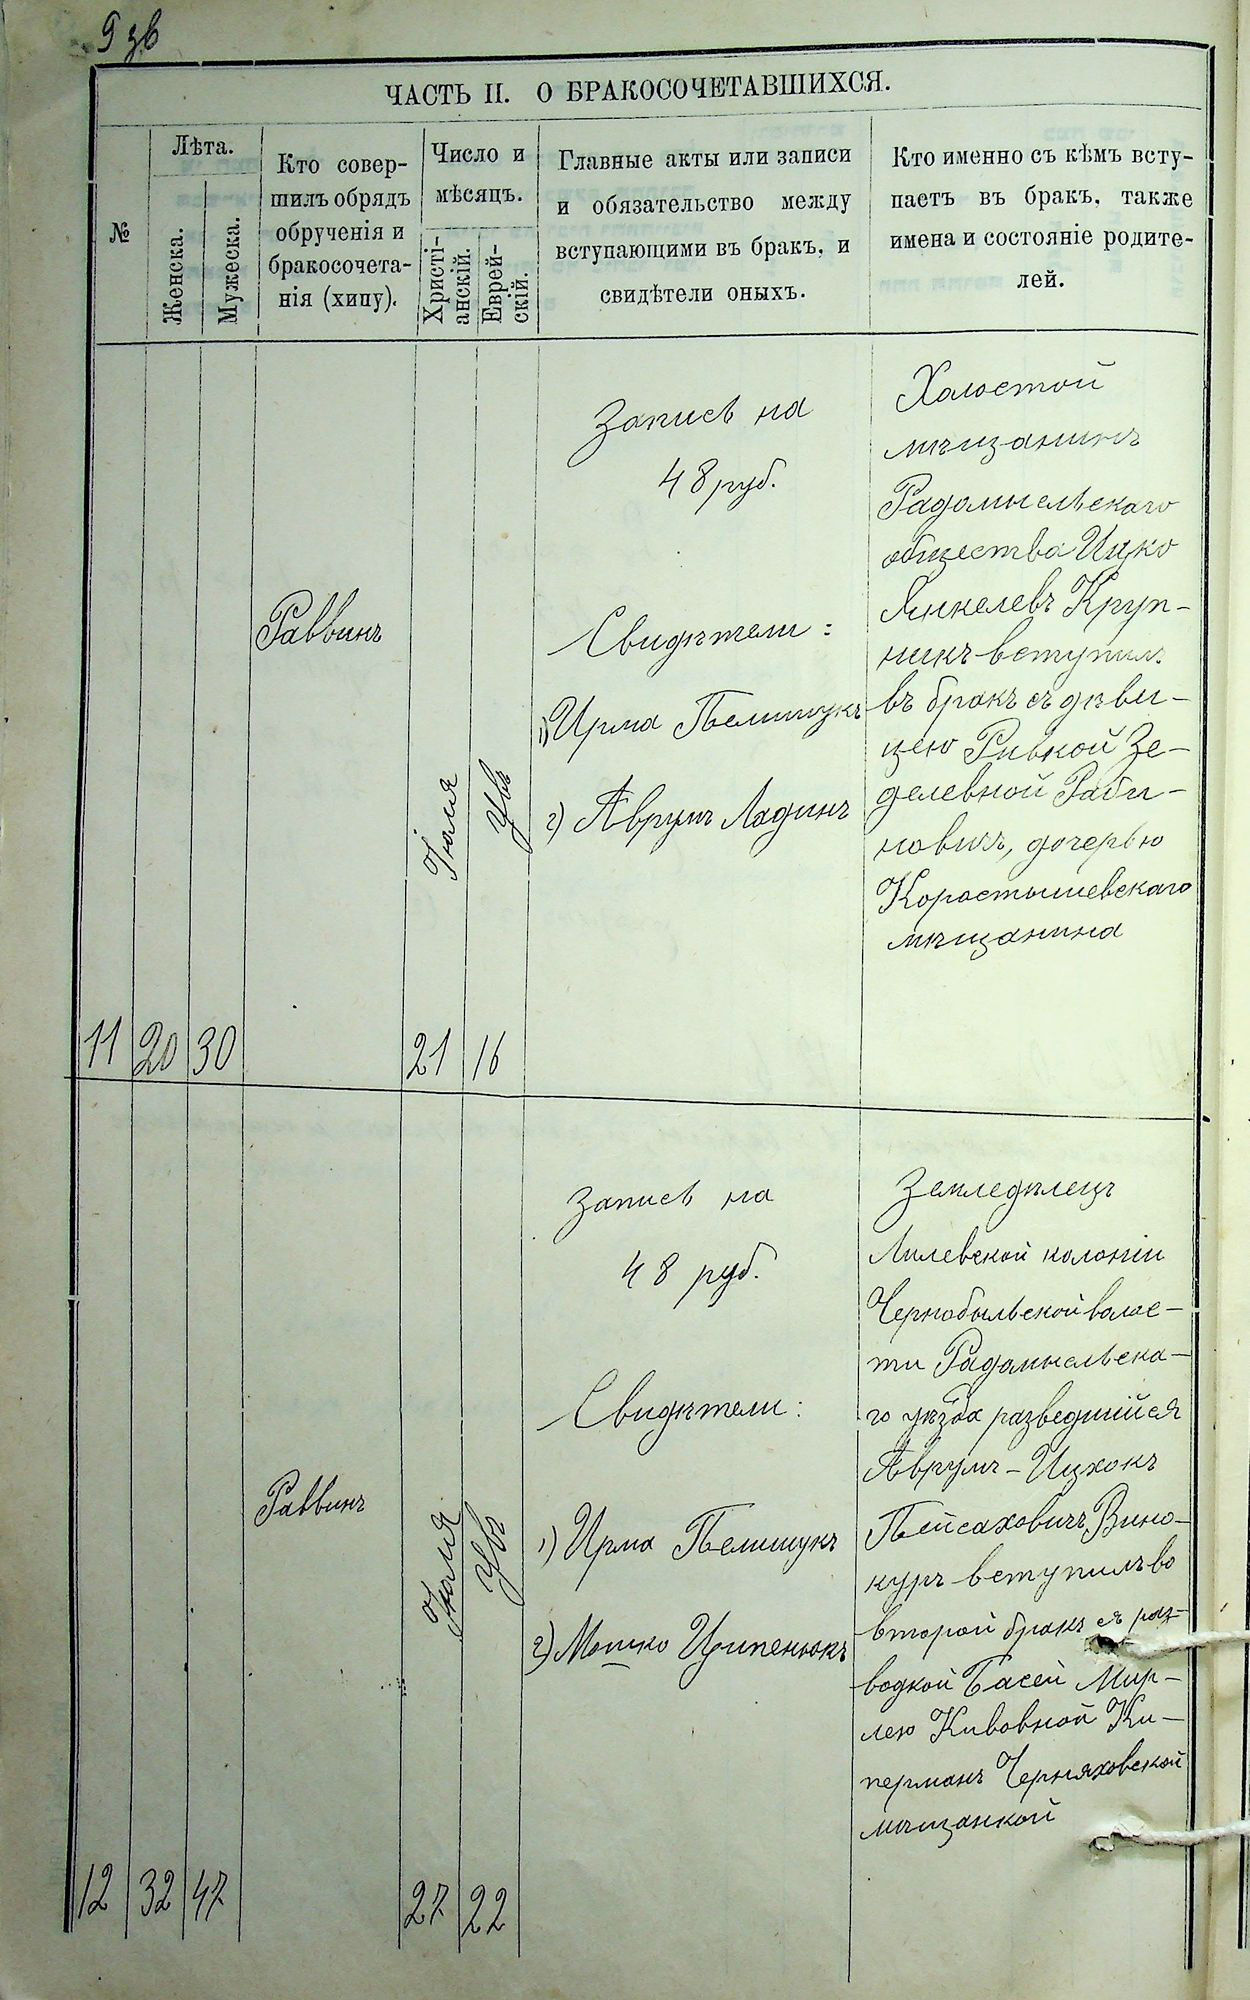 9 зв
ЧАСТЬ II. О БРАКОСОЧЕТАВШИХСЯ.
№
Лѣта.
Женска.
Мужеска.
Кто совер-
шилъ обрядъ
обрученія и
бракосочета-
нія (хипу).
Число и
мѣсяцъ.
Христі-
анскій.
Еврей-
скій.
Главные акты или записи
и обязательство между
вступающими въ бракъ, и
свидѣтели оныхъ.
Кто именно съ кѣмъ всту-
паетъ въ бракъ, также
имена и состояніе родите-
лей.
11
20
30
Раввинъ
Іюля
21
16
Запись на
48 руб.
Свидѣтели:
1) Ирма Пелишукъ
2) Аврумъ Ладинъ
Холостой
мѣщанинъ
Радомысльскаго
общества Ицко
Янкелевъ Круп-
никъ вступилъ
въ бракъ съ дѣви-
цею Ривкой Зе-
делевной Раби-
новичъ, дочерью
Коростышевскаго
мѣщанина
12
32
47
Раввинъ
Іюля
27
22
Запись на
48 руб.
Свидѣтели:
1) Ирма Пелишукъ
2) Мошко Ципенюкъ
Земледѣлецъ
Лилевской колоніи
Чернобыльской волос-
ти Радомысльска-
го уѣзда разведшійся
Аврумъ-Ицхокъ
Пейсаховичъ Вино-
куръ вступилъ во
второй бракъ съ раз-
водкой Басей Мир-
лею Кивовной Ки-
перманъ Черняховской
мѣщанкой